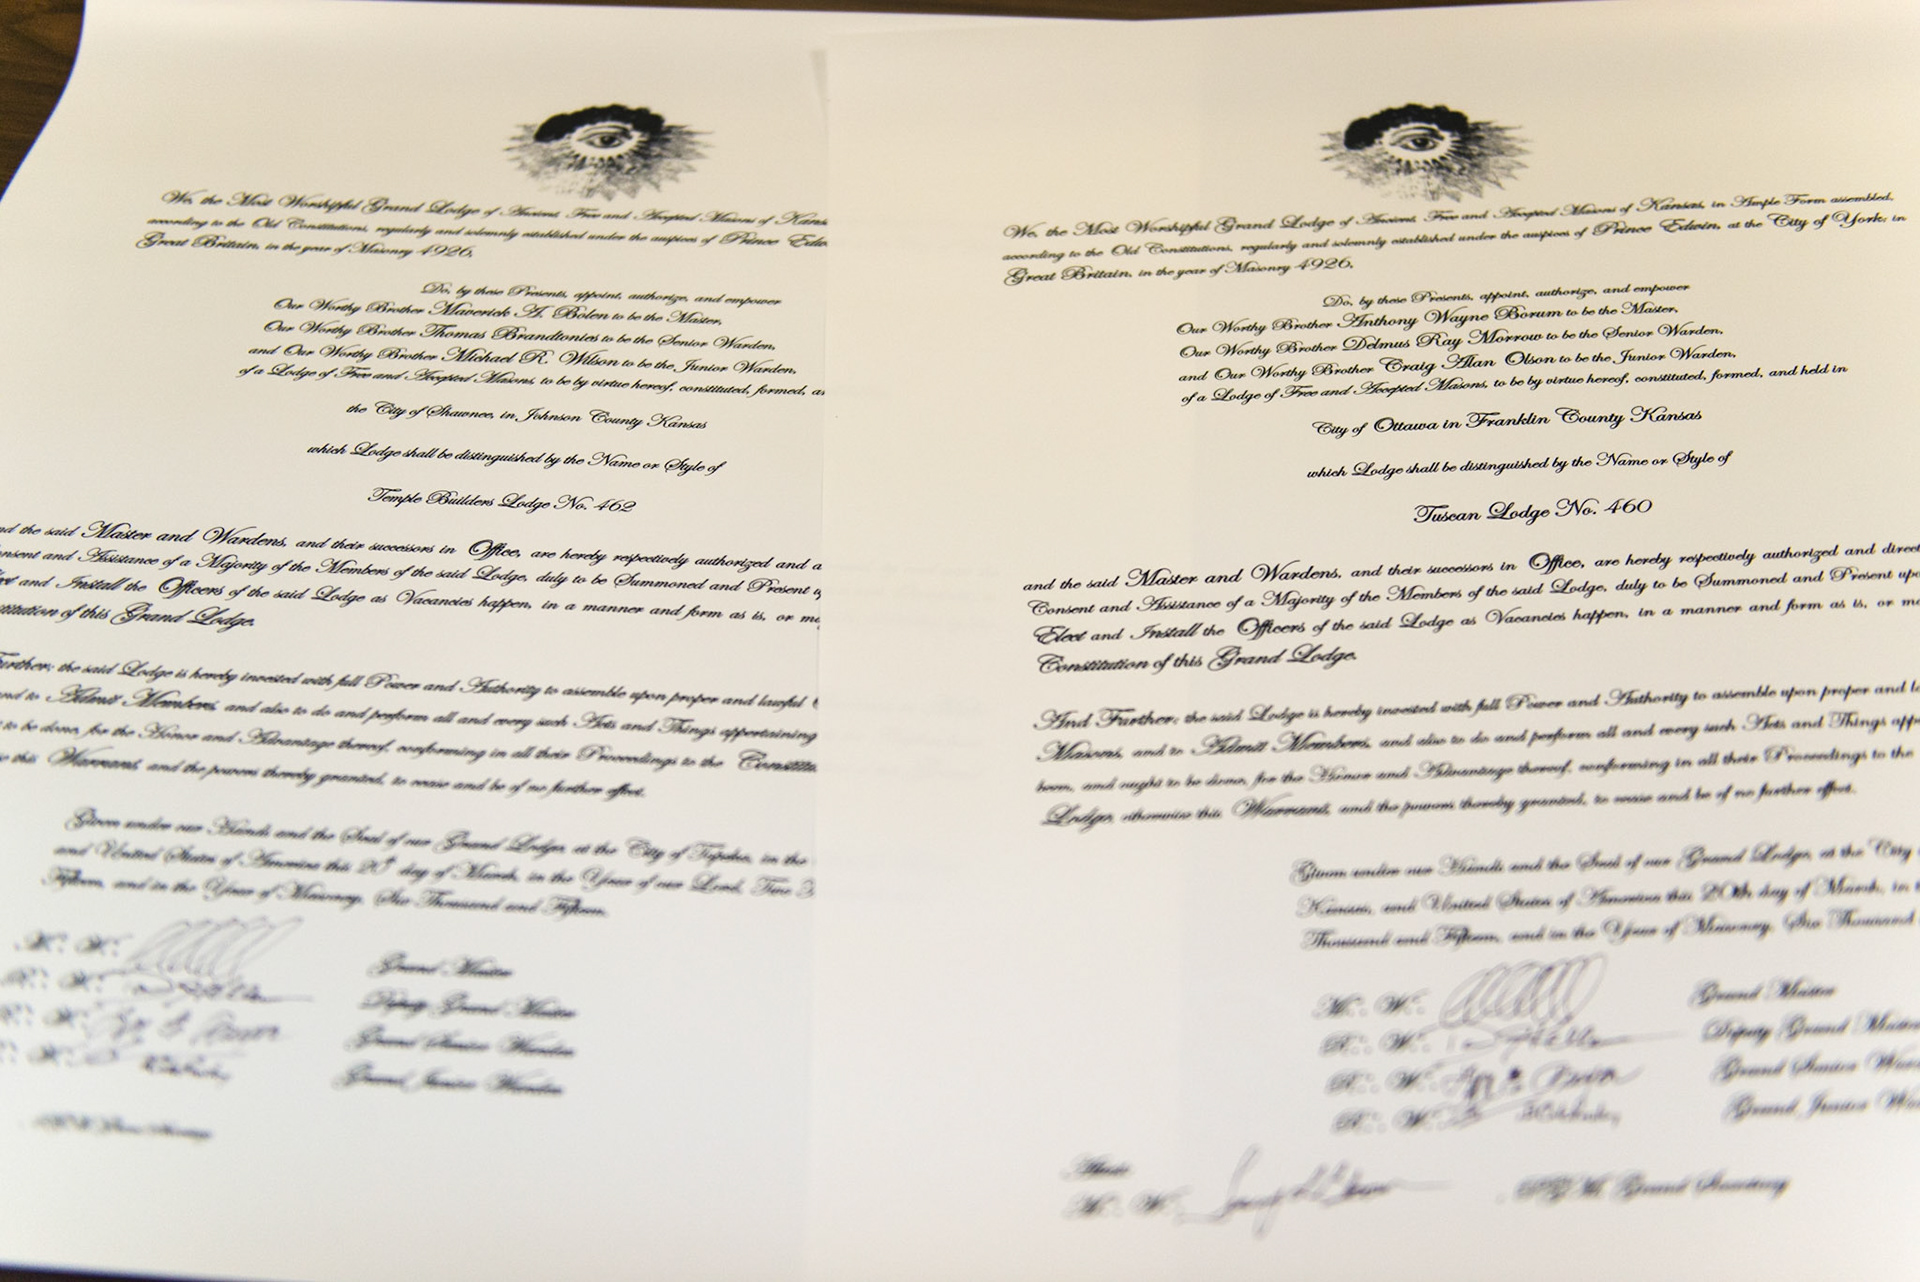 We, the Most Worshipful Grand Lodge of Ancient, Free and Accepted Masons of Kans
according to the Old Constitutions, regularly and solemnly established under the auspices of Prince Edw
Great Britain, in the year of Masonry 4926,
Do, by these Presents, appoint, authorize, and empower
Our Worthy Brother Maverick A. Bolen to be the Master,
Our Worthy Brother Thomas Brandtonies to be the Senior Warden,
and Our Worthy Brother Michael R. Wilson to be the Junior Warden,
of a Lodge of Free and Accepted Masons, to be by virtue hereof, constituted, formed, an
the City of Shawnee, in Johnson County Kansas
which Lodge shall be distinguished by the Name or Style of
Temple Builders Lodge No. 462
nd the said Master and Wardens, and their successors in Office, are hereby respectively authorized and a
nsent and Assistance of a Majority of the Members of the said Lodge, duly to be Summoned and Present
and Install the Officers of the said Lodge as Vacancies happen, in a manner and form as is, or ma
titution of this Grand Lodge.
Further; the said Lodge is hereby invested with full Power and Authority to assemble upon proper and lawful
nd to Admit Members, and also to do and perform all and every such Acts and Things appertaining
to be done, for the Honor and Advantage thereof, conforming in all their Proceedings to the Constitu
this Warrant, and the powers thereby granted, to cease and be of no further effect.
Given under our Hands and the Seal of our Grand Lodge, at the City of Topeka, in the
and United States of America this 20th day of March, in the Year of our Lord, Two
Fifteen, and in the Year of Masonry, Six Thousand and Fifteen.
Grand Master
Deputy Grand Master
Grand Senior Warden
Grand Junior Warden
We, the Most Worshipful Grand Lodge of Ancient, Free and Accepted Masons of Kansas, in Ample Form assembled,
according to the Old Constitutions, regularly and solemnly established under the auspices of Prince Edwin, at the City of York; in
Great Britain, in the year of Masonry 4926,
Do, by these Presents, appoint, authorize, and empower
Our Worthy Brother Anthony Wayne Borum to be the Master,
Our Worthy Brother Delmus Ray Morrow to be the Senior Warden,
and Our Worthy Brother Craig Alan Olson to be the Junior Warden,
of a Lodge of Free and Accepted Masons, to be by virtue hereof, constituted, formed, and held in
City of Ottawa in Franklin County Kansas
which Lodge shall be distinguished by the Name or Style of
Tuscan Lodge No. 460
and the said Master and Wardens, and their successors in Office, are hereby respectively authorized and direct
Consent and Assistance of a Majority of the Members of the said Lodge, duly to be Summoned and Present upo
Elect and Install the Officers of the said Lodge as Vacancies happen, in a manner and form as is, or ma
Constitution of this Grand Lodge.
And Further; the said Lodge is hereby invested with full Power and Authority to assemble upon proper and la
Masons, and to Admit Members, and also to do and perform all and every such Acts and Things appe
been, and ought to be done, for the Honor and Advantage thereof, conforming in all their Proceedings to the
Lodge, otherwise this Warrant, and the powers thereby granted, to cease and be of no further effect.
Given under our Hands and the Seal of our Grand Lodge, at the City
Kansas, and United States of America this 20th day of March, in t
Thousand and Fifteen, and in the Year of Masonry, Six Thousand
M∴ W∴ Grand Master
R∴ W∴ Deputy Grand Master
R∴ W∴ Grand Senior War
R∴ W∴ Grand Junior Wa
Attest
Grand Secretary